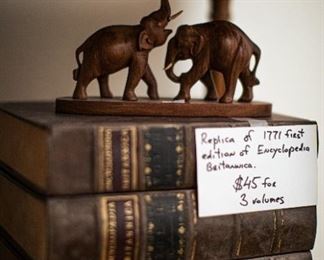 Replica of 1771 first
edition of Encyclopedia
Britannica.
$45 for
3 volumes